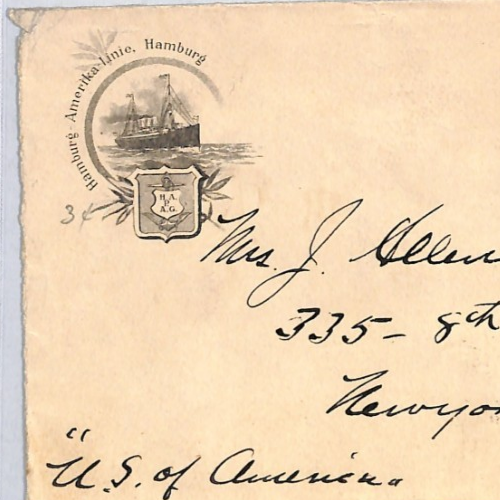 Hamburg-Amerika-Linie, Hamburg
H.A.
P.
A.G.
34
Mrs. J. Allen
335 - 8th
Newyo
"U.S. of America.